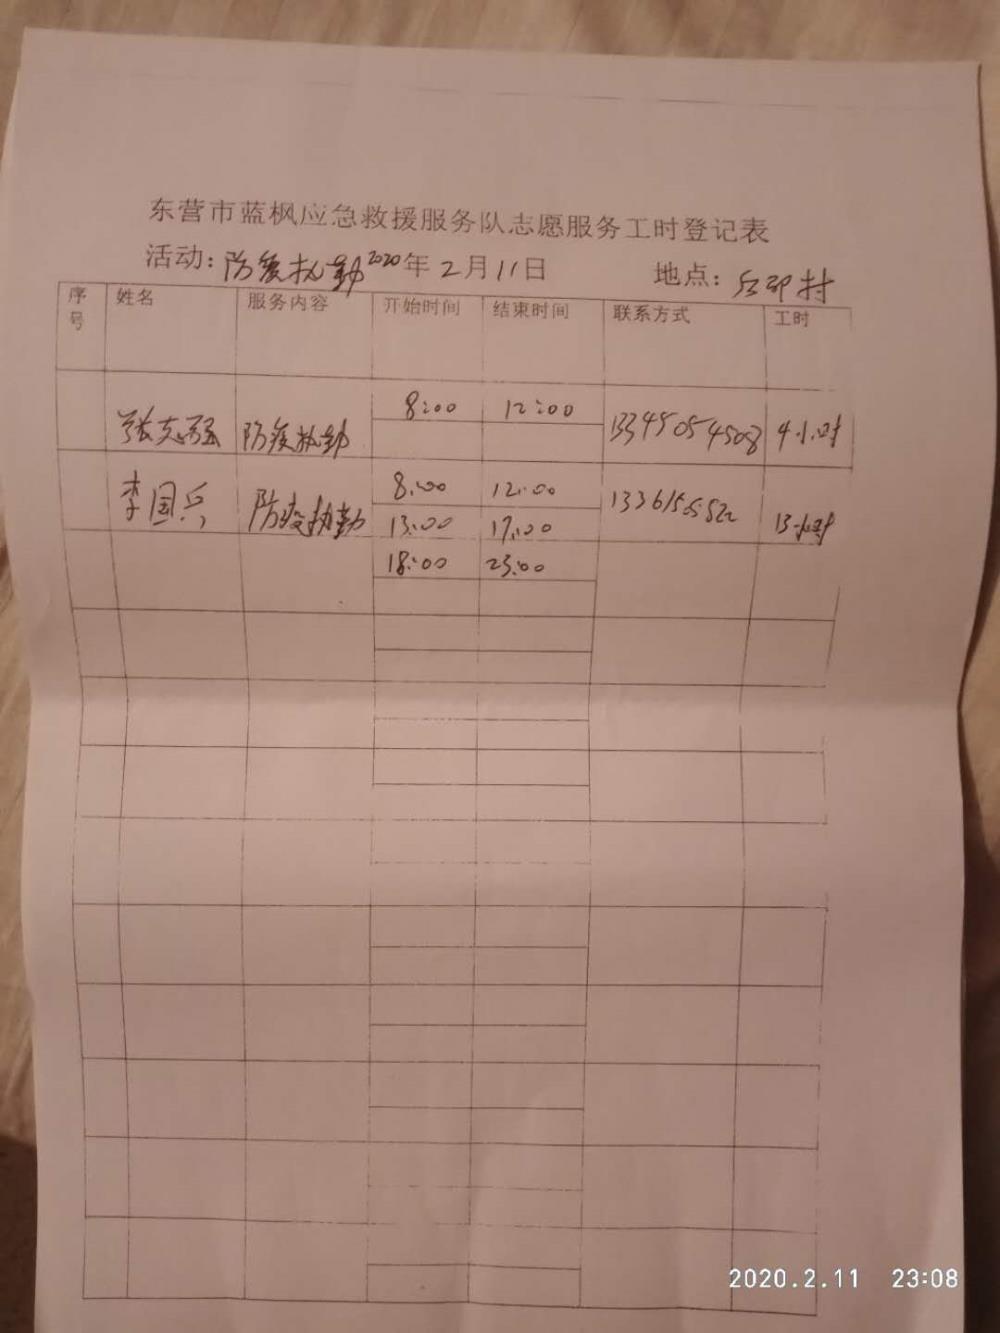 东营市蓝枫应急救援服务队志愿服务工时登记表
活动：防疫执勤 2020年2月11日 地点：村
序号 姓名 服务内容 开始时间 结束时间 联系方式 工时
张志强 防疫执勤 8:00 12:00 13345054508 4小时
李国兵 防疫执勤 8:00 12:00 13小时
13:00 17:00
18:00 23:00
2020.2.11 23:08